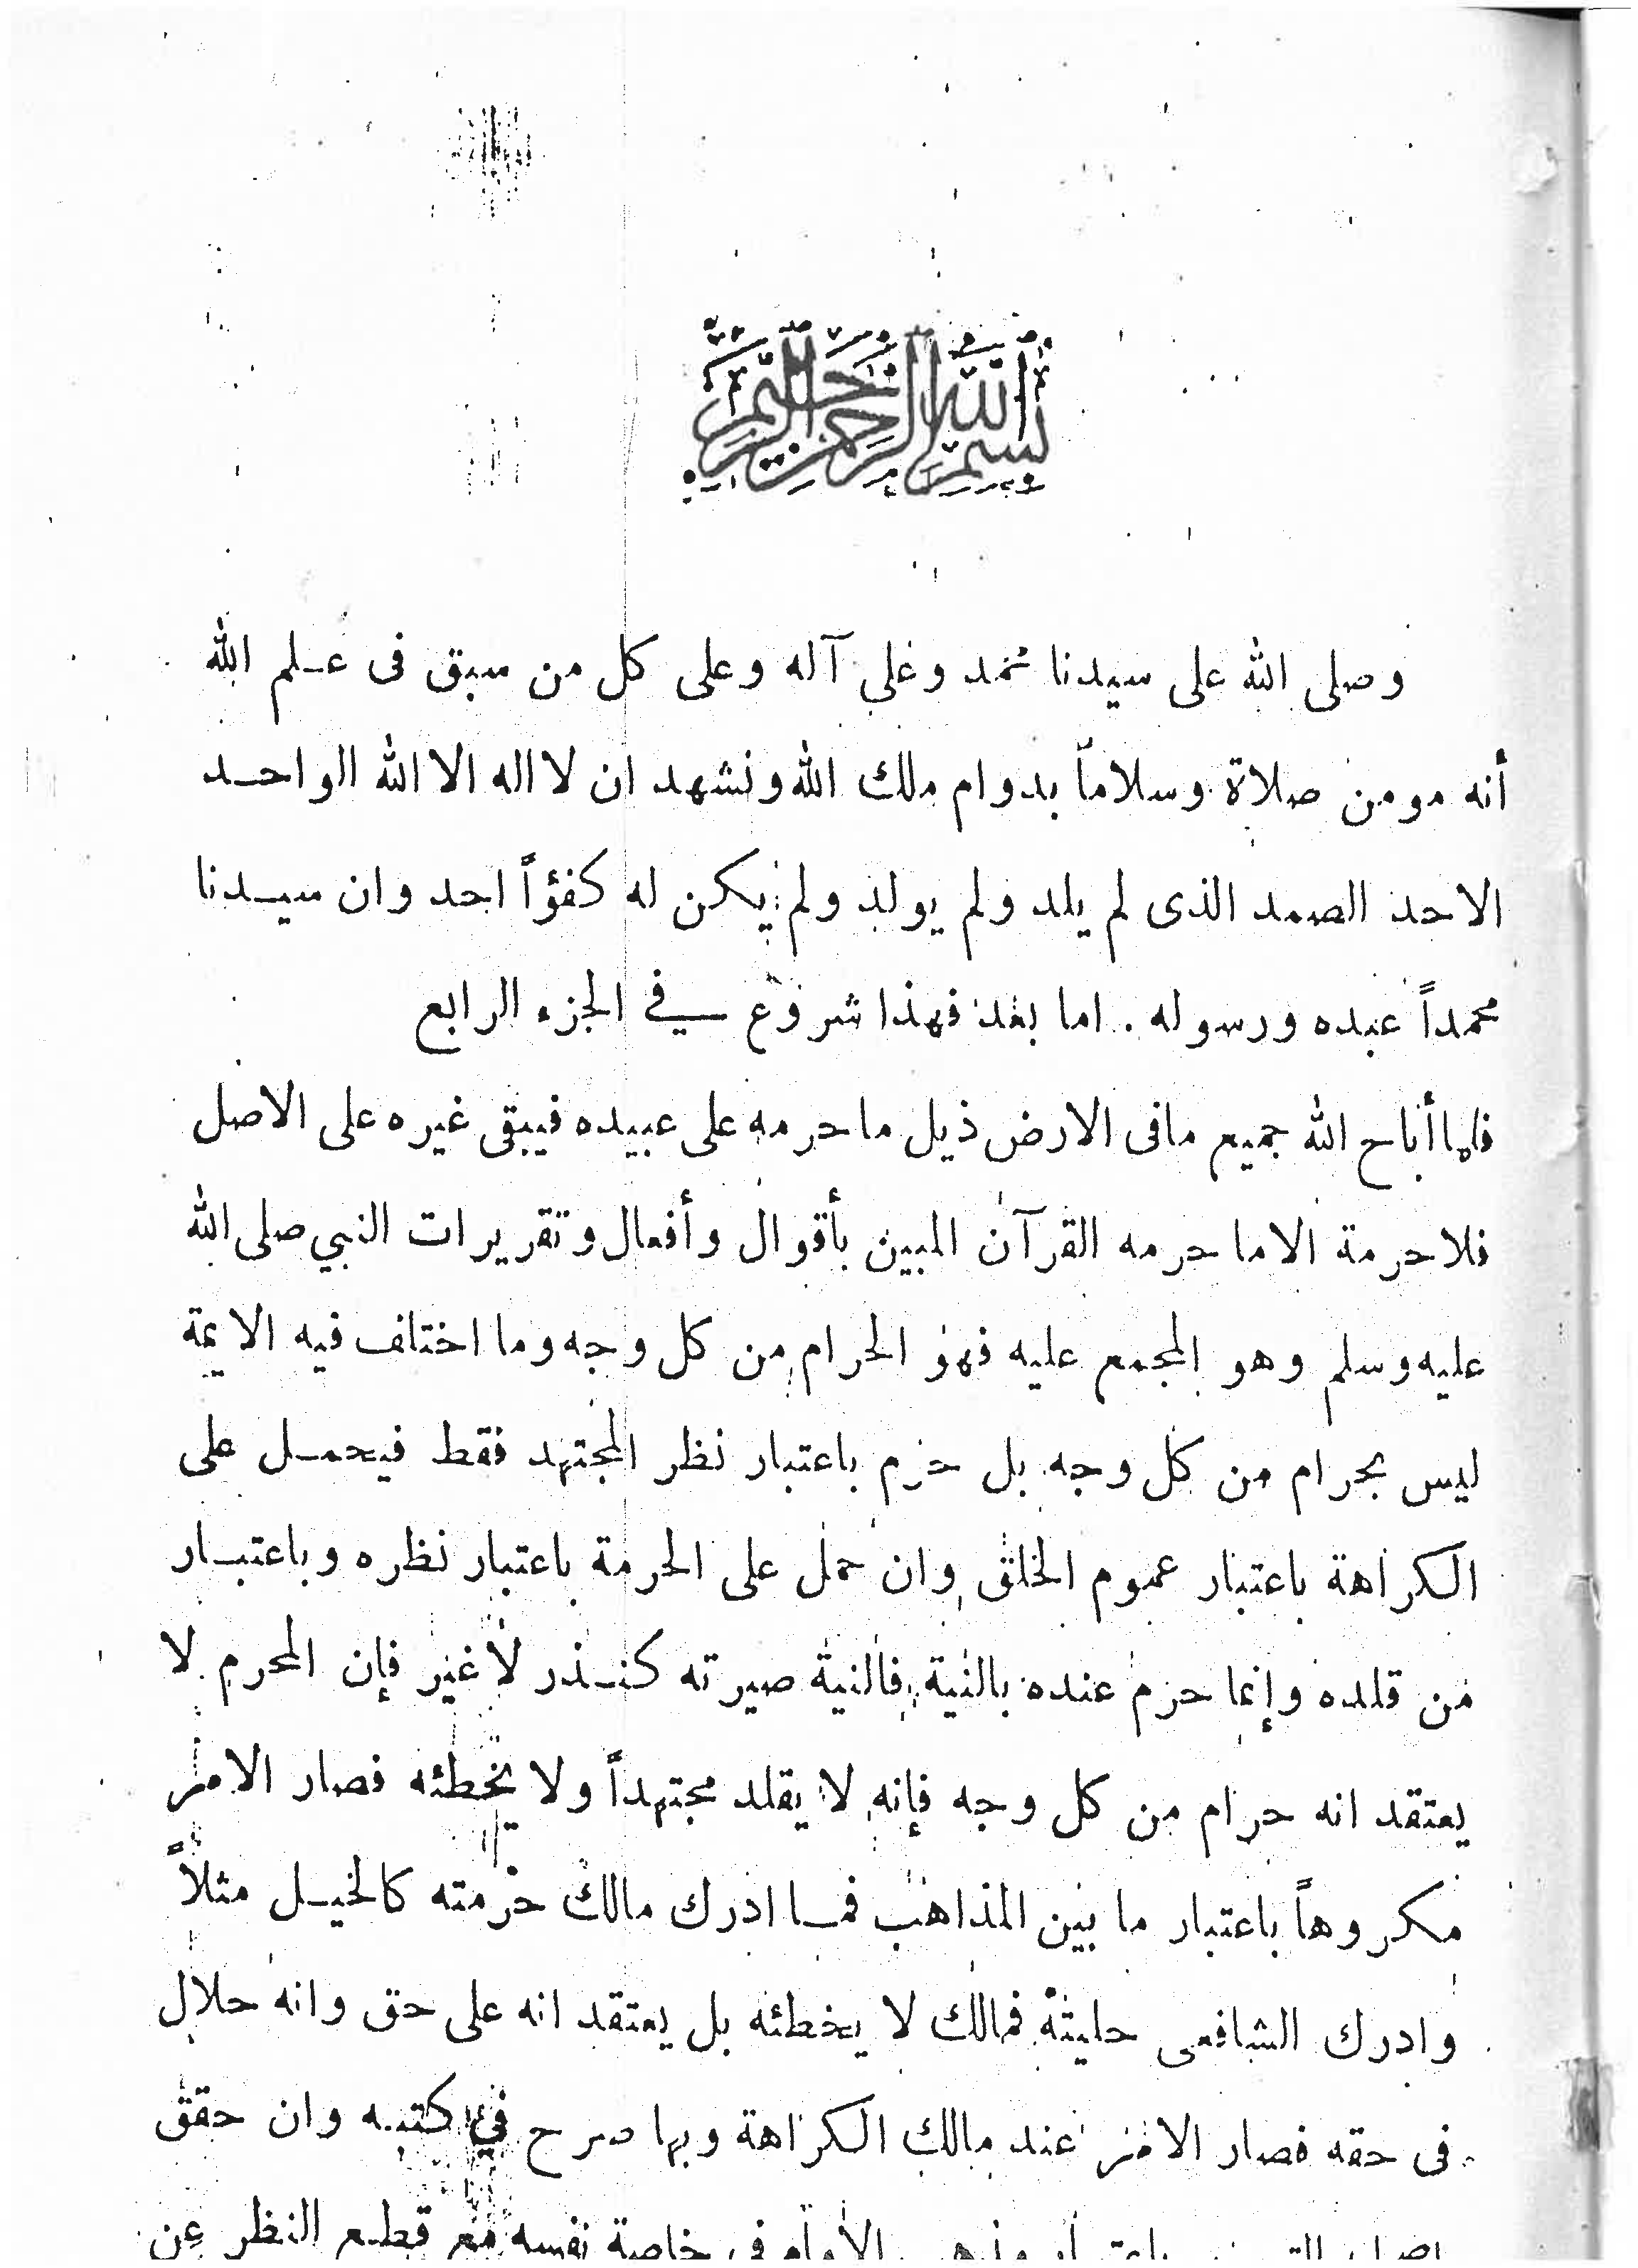 بسم الله الرحمن الرحيم
وصلى الله على سيدنا محمد وعلى آله وعلى كل من سبق فى علم الله
أنه مومن صلاة وسلاماً بدوام ملك الله ونشهد ان لا اله الا الله الواحد
الاحد الصمد الذى لم يلد ولم يولد ولم يكن له كفؤاً احد وان سيدنا
محمداً عبده ورسوله . اما بعد فهذا شروع في الجزء الرابع
فلما أباح الله جميع مافى الارض ذيل ما حرمه على عبيده فيبقى غيره على الاصل
فلا حرمة الا ما حرمه القرآن المبين بأقوال وأفعال وتقريرات النبي صلى الله
عليه وسلم وهو المجمع عليه فهو الحرام من كل وجه وما اختلف فيه الايمة
ليس بحرام من كل وجه بل حرم باعتبار نظر المجتهد فقط فيحمل على
الكراهة باعتبار عموم الخلق وان حمل على الحرمة باعتبار نظره وباعتبار
من قلده وإنما حرم عنده بالنية فالنية صيرته كنذر لا غير فإن المحرم لا
يعتقد انه حرام من كل وجه فإنه لا يقلد مجتهداً ولا يخطئه فصار الامر
مكروهاً باعتبار ما بين المذاهب فما ادرك مالك حرمته كالخيل مثلاً
وادرك الشافعى حليته فمالك لا يخطئه بل يعتقد انه على حق وانه حلال
فى حقه فصار الامر عند مالك الكراهة وبها صرح في كتبه وان حقق
الأمام فى خاصة نفسه مع قطع النظر عن